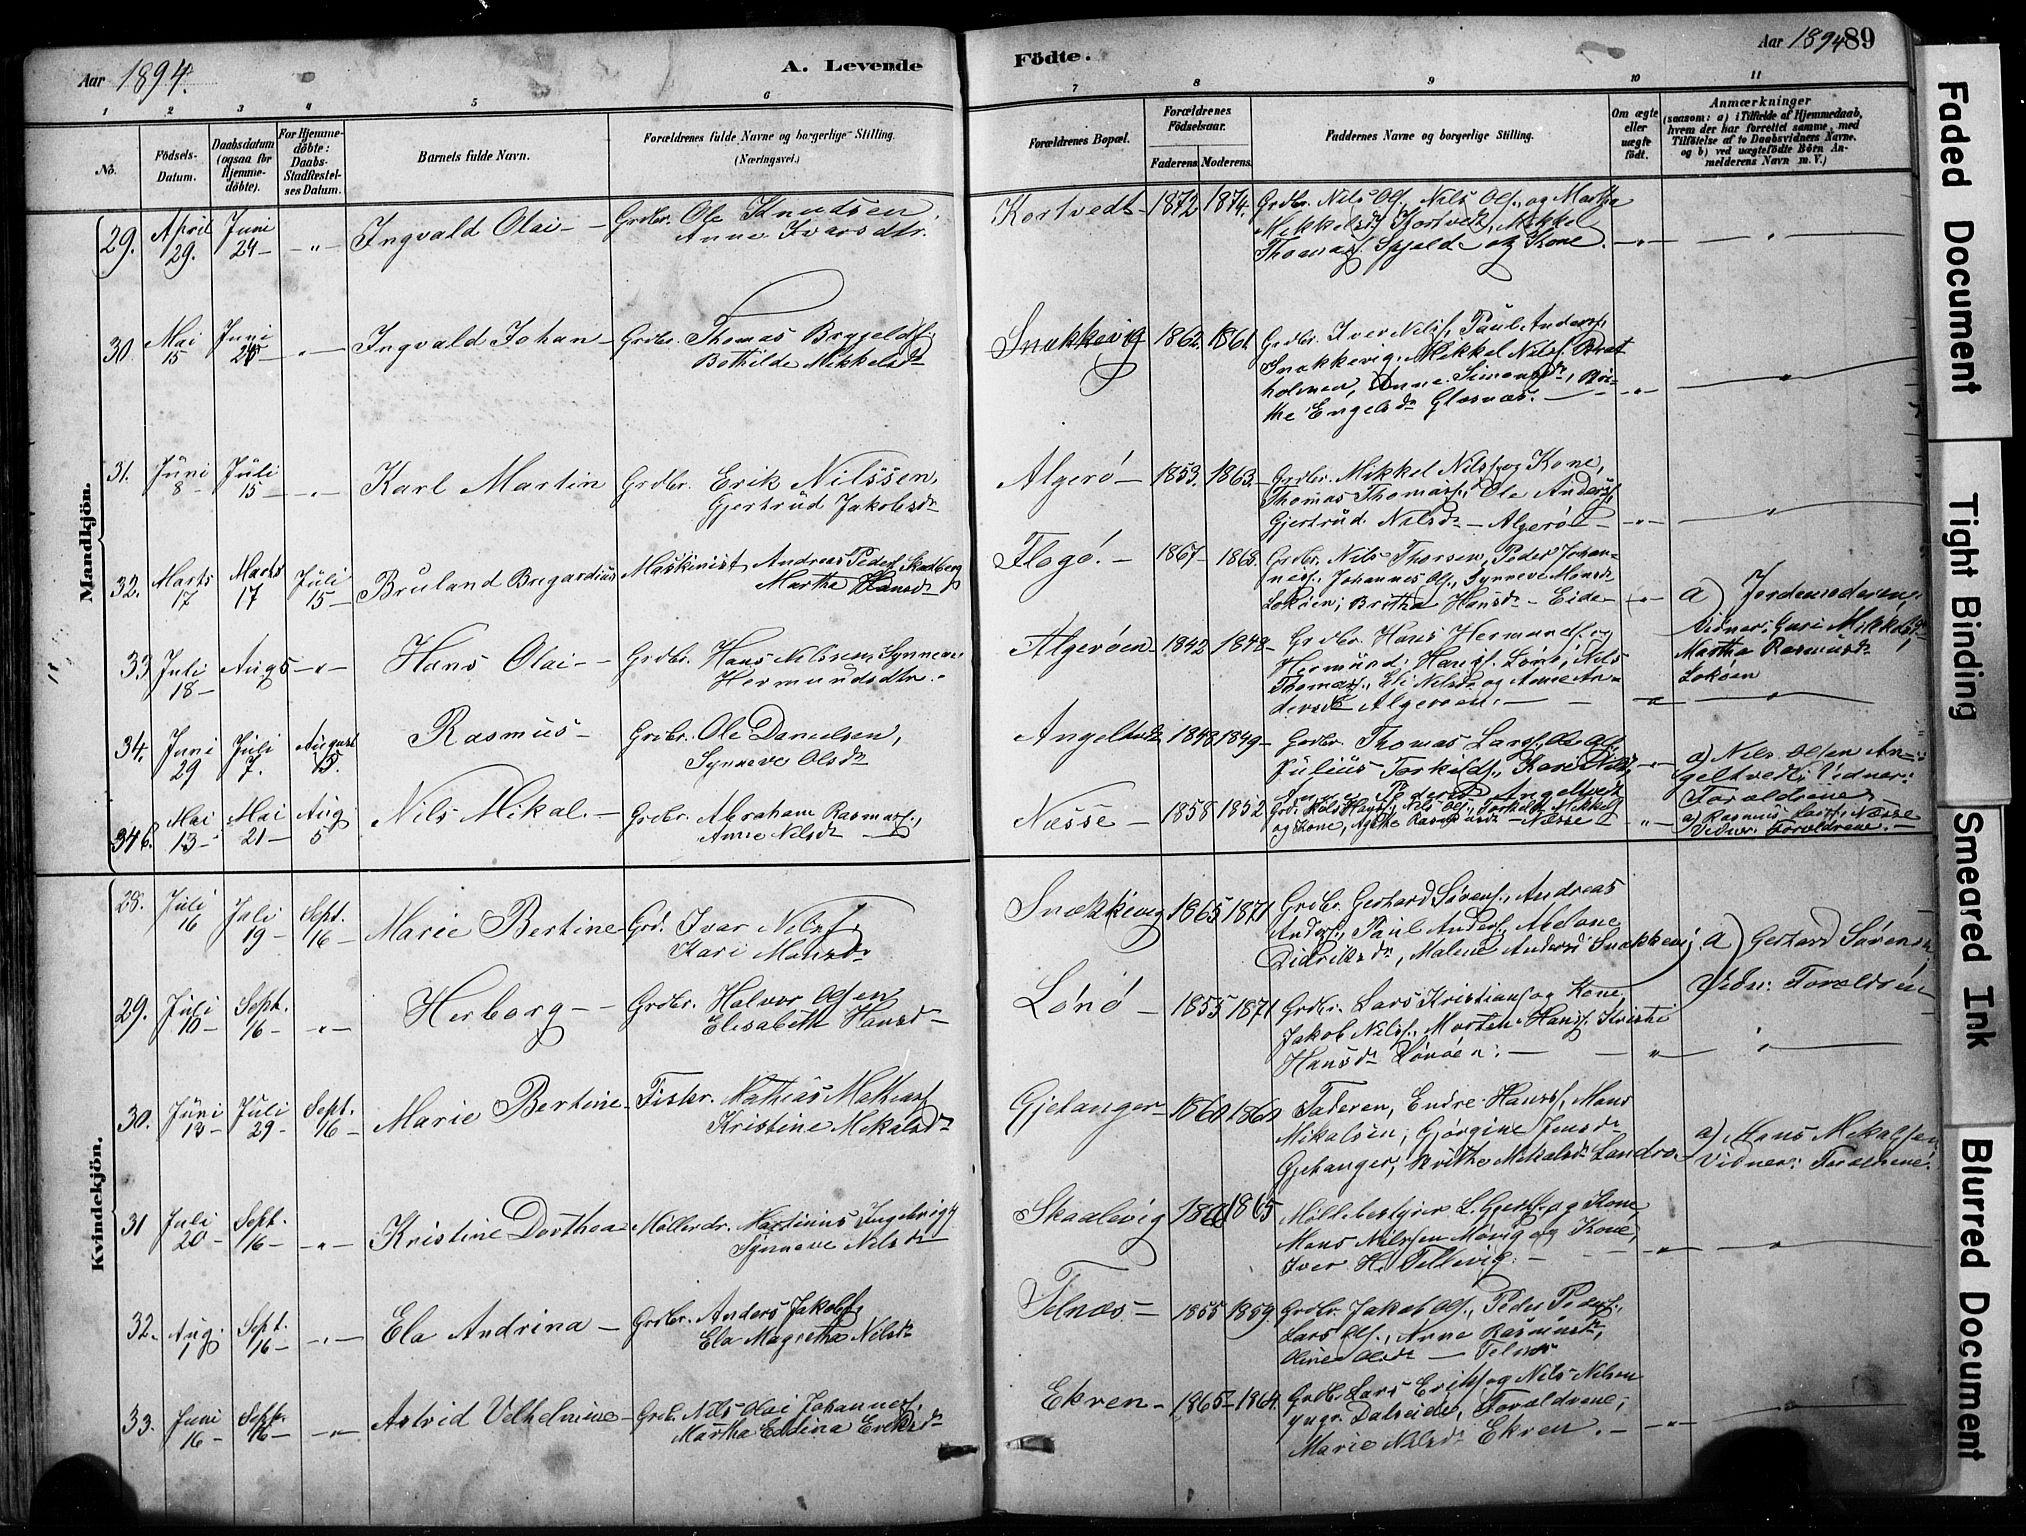 Aar 1894.
A. Levende
Födte.
Aar 1894
89
1 2 3 4 5 6 7 8 9 10 11
No.
Födsels-
Datum.
Daabsdatum
(ogsaa for
Hjemme-
döbte).
For Hjemme-
döbte:
Daabs-
Stadfæstel-
ses Datum.
Barnets fulde Navn.
Forældrenes fulde Navne og borgerlige Stilling.
(Næringsvei.)
Forældrenes Bopæl.
Forældrenes
Födselsaar.
Faderens. Moderens.
Faddernes Navne og borgerlige Stilling.
Om ægte
eller
uægte
født.
Anmærkninger
(saasom: a) i Tilfælde af Hjemmedaab,
hvem der har forrettet samme, med
Tilföielse af to Daabsvidners Navne.
og b) ved uægtefödte Börn An-
melderens Navn m. V.)
Mandkjön.
29. April 29. Juni 24 — " — Ingvald Olai — Grdbr. Ole Knudsen,
Anne Ivarsdtr.
Kortvedt — 1872 1874. Grdbr. Nils Ols., Nils Ols., og Martha
Mikkelsd. Kortvedt, Mikkel
Thomass. Spjelde og Kone. — " —
30. Mai 15 Juni 24 — " — Ingvald Johan — Grdbr. Thomas
Bothilde Mikkelsd.
Snækkevig 1862. 1861. Grdbr. Iver Nilss., Paul Anders.,
Snækkevig, Mikkel Nilss. Brat
holmen, Anne Simonsd.,
the Engelsd. Glæsnæs. — " —
31. Juni 8 — Juli 15 — " — Karl Martin Grdbr. Erik Nilssen,
Gjertrud Jakobsd.
Algerö — 1853. 1863. Grdbr. Mikkel Nilss. og Kone,
Thomas Thomass., Ole Anders.,
Gjertrud Nilsd. — Algerö — " —
32. Marts 17 Marts 17 Juli 15 — Bruland Maskinist Andreas Peders. Skadberg
Martha Hansd.
Flogö. — 1867 — 1868. Grdbr. Nils Thorsen, Peder Johan-
ness., Johannes Ols., Synneve Monsd.
Loköen; Britha Hansd. — Eide — " —
a) Jordemoderen.
Vidner: Guri Mikkelsd.,
Martha Rasmusd.
Loköen
33 Juli 18 — Aug 5 — " — Hans Olai — Grdbr. Hans Nilsen, Synneve
Hermundsdtr. —
Algeröen 1842 1848 — Grdbr. Hans Hermunds. og
Hermund Hanss. Lönö, Nils
Thomass., Eli Nilsd. og Anne An-
dersd. Algeröen. — " —
34. Juni 29 Juli 7. August 15. Rasmus — Grdbr. Ole Danielsen,
Synneve Olsd.
Angeltvedt 1848 1849 — Grdbr. Thomas Larss., Ole Ols.,
Julius Torkilds., Kari Nilsd.,
Anne Pedersd. Angeltvedt — " —
a) Nils Olsen An-
geltvedt; Vidner:
Forældrene
34 b. Mai 13 — Mai 21 — Aug 5 Nils Mikal. — Grdbr. Abraham Rasmuss.,
Anne Nilsd. —
Næsse — 1858 1852 Nils Ols., Torkild Mikkels.
og Kone, Rasmusd. — Næsse — " —
a) Rasmus Larss. Næsse
Vidner: Forældrene. —
Kvindekjön.
28. Juli 16 Juli 19 — Sept. 16 — Marie Bertine Grd. Ivar Nilss.
Kari Monsd.
Snækkevig 1865 1871 Grdbr. Gerhard Sörens., Andreas
Anders., Paul Anders.,
Didriksd., Malene Andersd. Snækkevig
a) Gerhard Sörensen
Vidn: Forældrene
29. Juli 10 — Sept. 16 — " — Herborg — Grdbr. Halvor Olsen,
Elisabeth Hansd. —
Lönö — 1855 1871 Grdbr. Lars Kristians. og Kone,
Jakob Nilss., Morten Hanss., Kristi
Hansd. Lönöen; — " —
30. Juni 13 — Juli 29 — Sept. 16 — Marie Bertine Fisker. Mathias Mathiass.
Kristine Mikalsd.
Gjetanger — 1860 1860 Faderen, Endre Hanss., Mons
Mikalsen; Gjörgine Jensd.
Gjetanger, Brithe Mikalsd. Landro.
a) Mons Mikalsen
Vidner: Forældrene.
31 Juli 20 — Sept. 16 — " — Kristine Dorthea Möllerdr. Martinius Ingebrigts.
Synneve Nilsd.
Skaalevig 1865 Möllebestyrer L. Gjerts. og Kone,
Mons Nilssen Mörig og Kone,
Iver H. Tellevig. — " —
32. Aug. 1 Sept. 16 — " — Ela Andrina — Grdbr. Anders Jakobs.
Ela Magretha Nilsd.
Telnæs — 1855 1859. Grdbr. Jakob Ols., Peder Peders.,
Lars Ols., Anne Rasmusd.,
Oline Olsd. — Telnæs
33. Juni 16 — Sept. 16 — " — Astrid Vilhelmine — Grdbr. Nils Olai Johanness.
Martha Eddina Eriksd.
Ekren — 1865 — 1864. Grdbr. Lars Eriks. og Nils Nilsen
yngr. Dalseide, Forældrene;
Marie Nilsd. Ekren. — " —
Faded Document
Tight Binding
Smeared Ink
Blurred Document